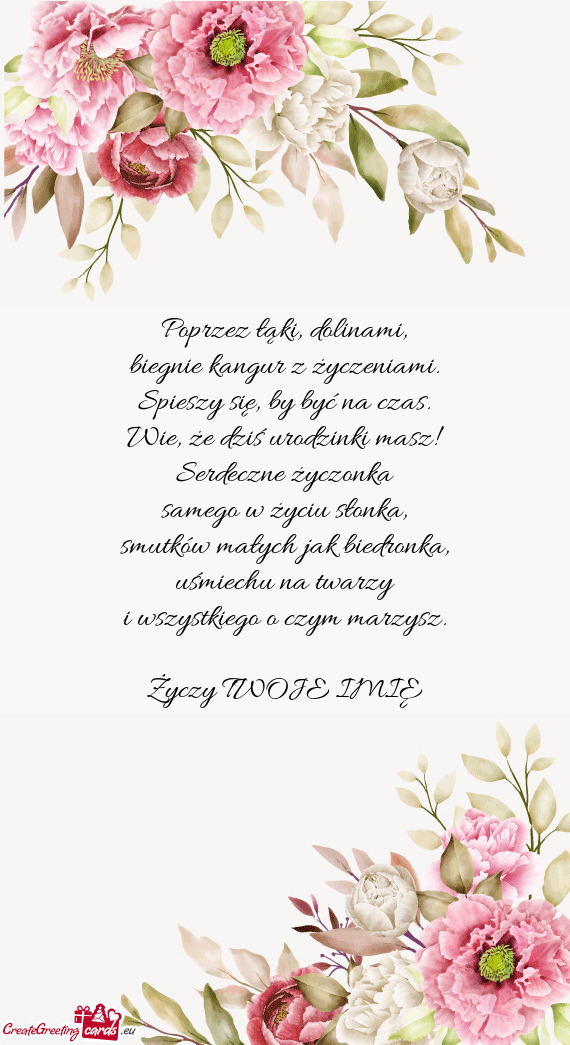 Poprzez łąki, dolinami,
biegnie kangur z życzeniami.
Spieszy się, by być na czas.
Wie, że dziś urodzinki masz!
Serdeczne życzonka
samego w życiu słonka,
smutków małych jak biedronka,
uśmiechu na twarzy
i wszystkiego o czym marzysz.
Życzy TWOJE IMIĘ
CreateGreeting cards .eu